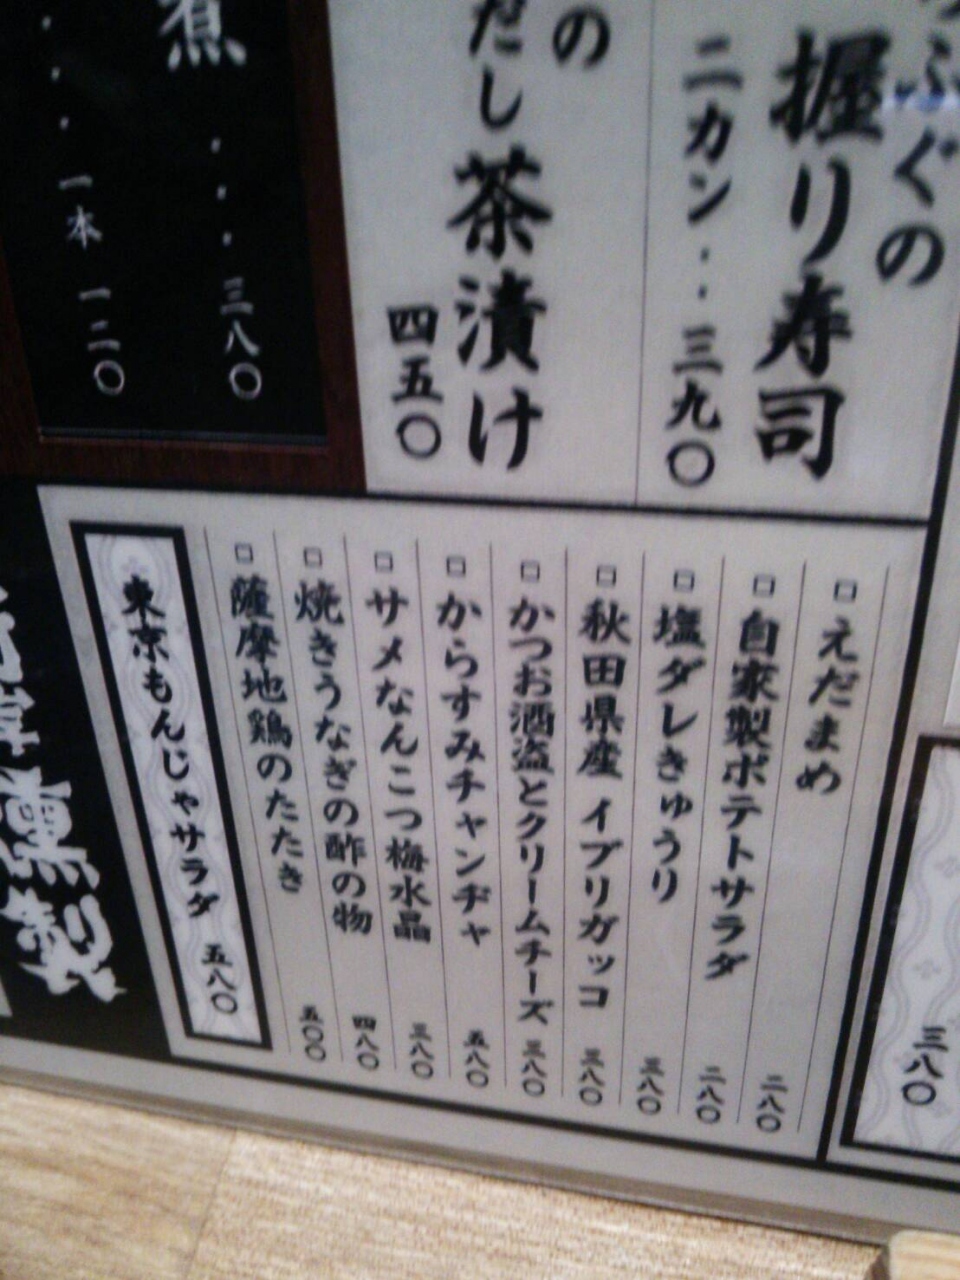 ふぐの
握り寿司
二カン・・三九〇
の
だし茶漬け
四五〇
煮・・・三八〇
・・・一本 一二〇
□えだまめ 二八〇
□自家製ポテトサラダ 二八〇
□塩ダレきゅうり 三八〇
□秋田県産 イブリガッコ 三八〇
□かつお酒盗とクリームチーズ 三八〇
□からすみチャンヂャ 五八〇
□サメなんこつ梅水晶 三八〇
□焼きうなぎの酢の物 四八〇
□薩摩地鶏のたたき 五〇〇
東京もんじゃサラダ 五八〇
燻製
三八〇